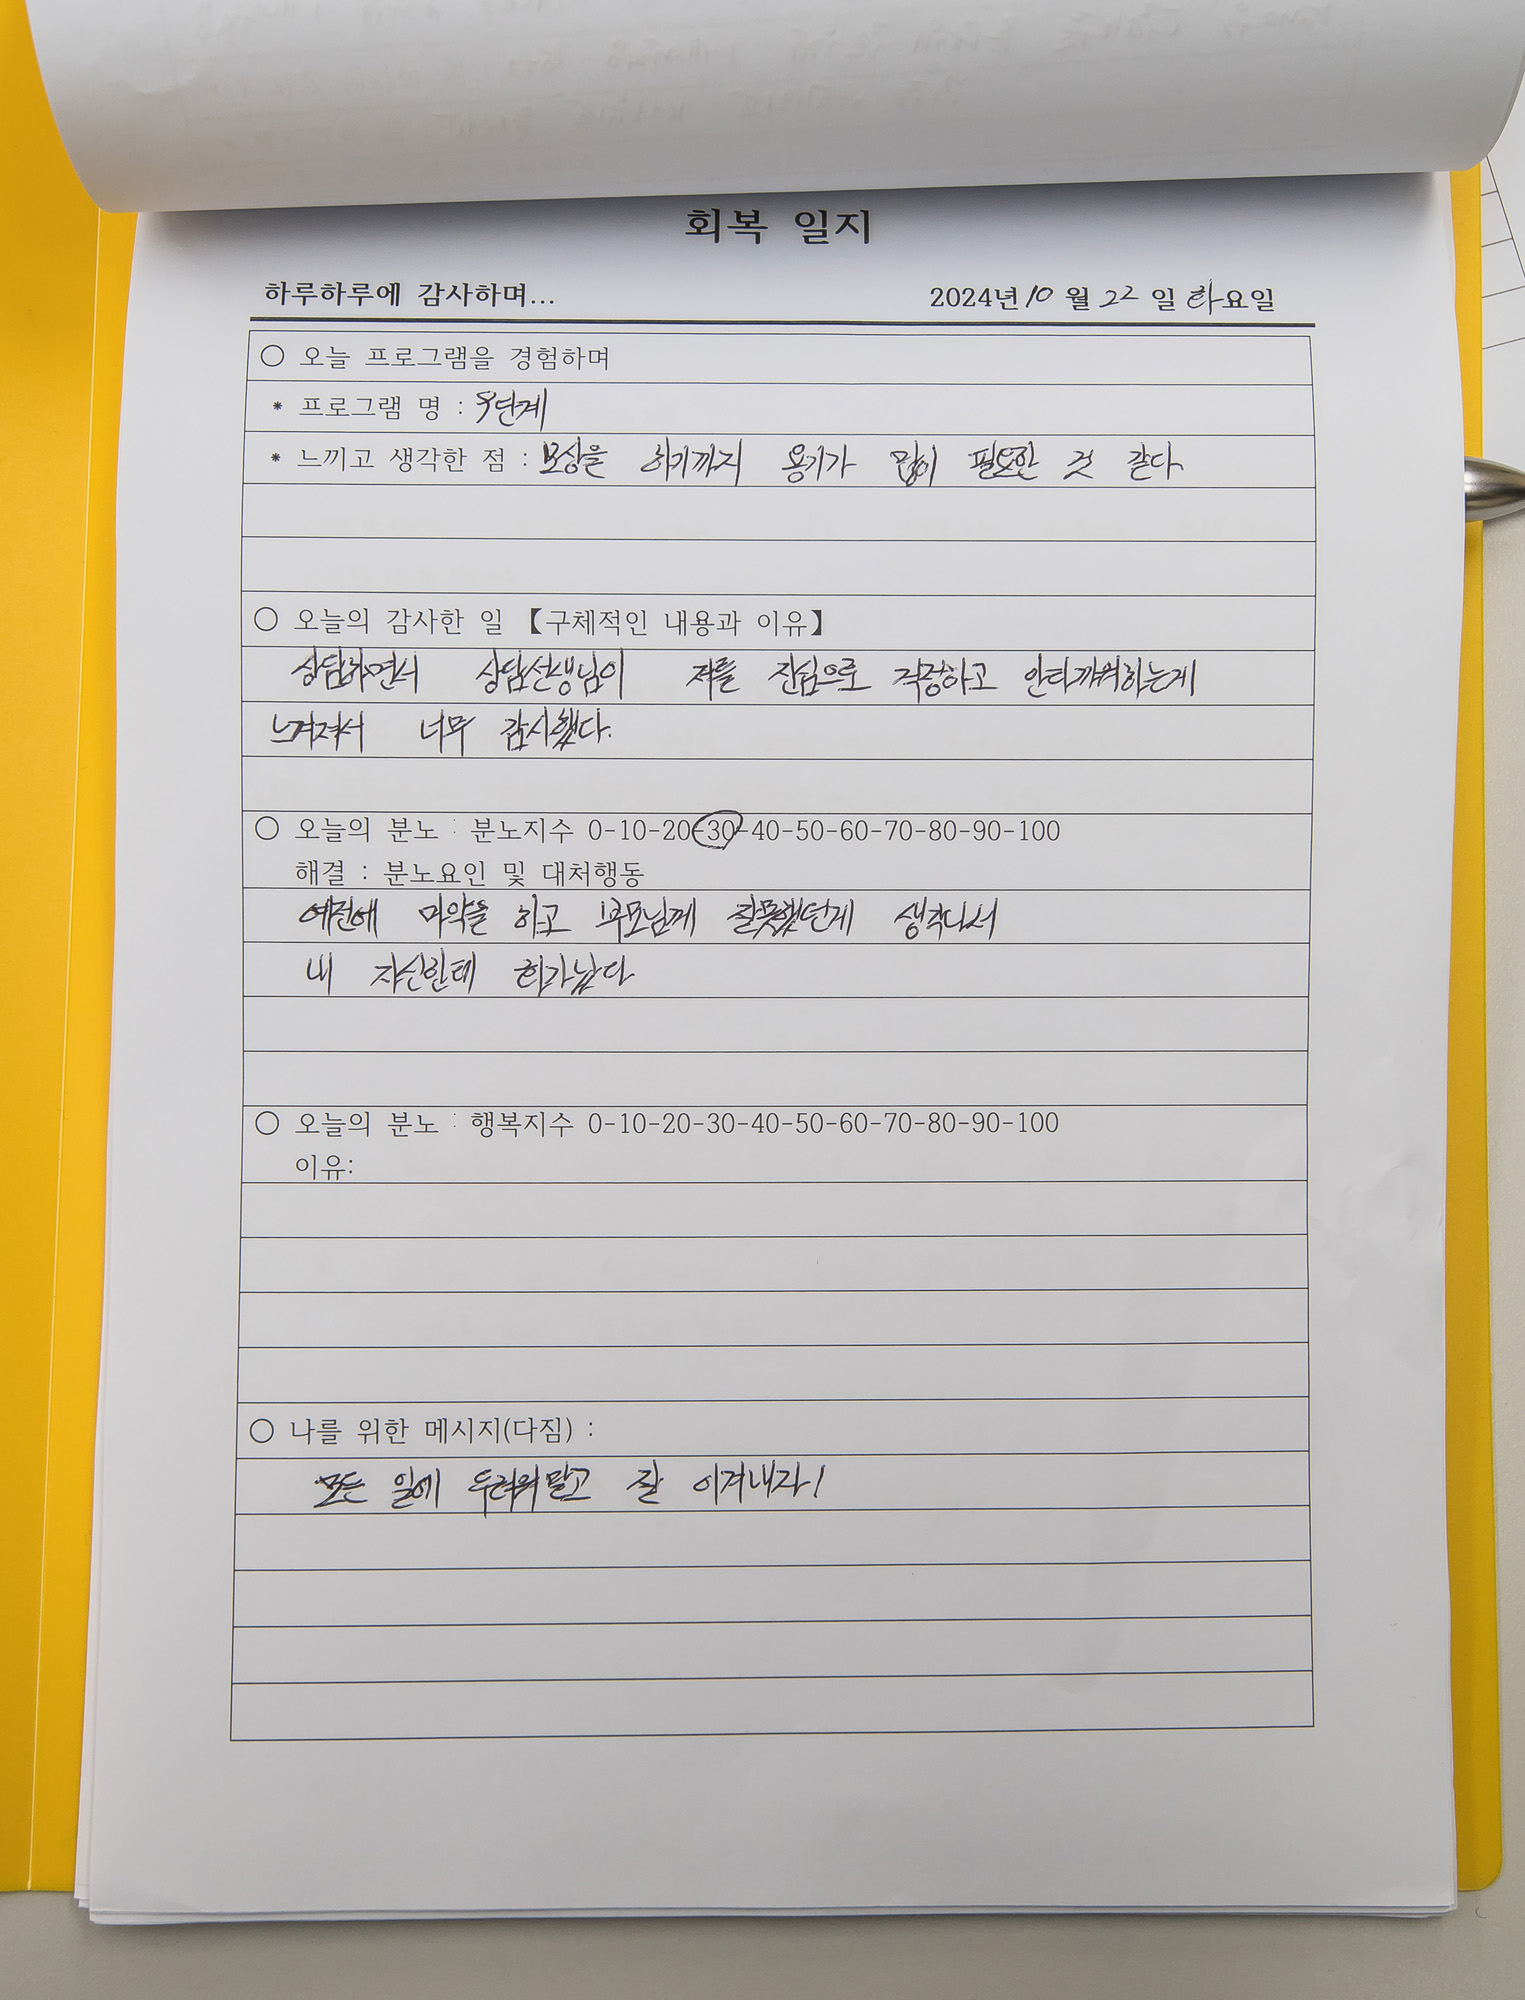 회복 일지
하루하루에 감사하며...
2024년 10 월 22 일 화요일
○ 오늘 프로그램을 경험하며
* 프로그램 명 : 9단계
* 느끼고 생각한 점 : 보상을 하기까지 용기가 많이 필요한 것 같다
○ 오늘의 감사한 일 【구체적인 내용과 이유】
상담하면서 상담선생님이 저를 진심으로 걱정하고 안타까워하는게
느껴져서 너무 감사했다.
○ 오늘의 분노 : 분노지수 0-10-20-30-40-50-60-70-80-90-100
해결 : 분노요인 및 대처행동
예전에 마약을 하고 부모님께 잘못했던게 생각나서
내 자신한테 화가났다
○ 오늘의 분노 : 행복지수 0-10-20-30-40-50-60-70-80-90-100
이유:
○ 나를 위한 메시지(다짐) :
모든 일에 두려워말고 잘 이겨내자!